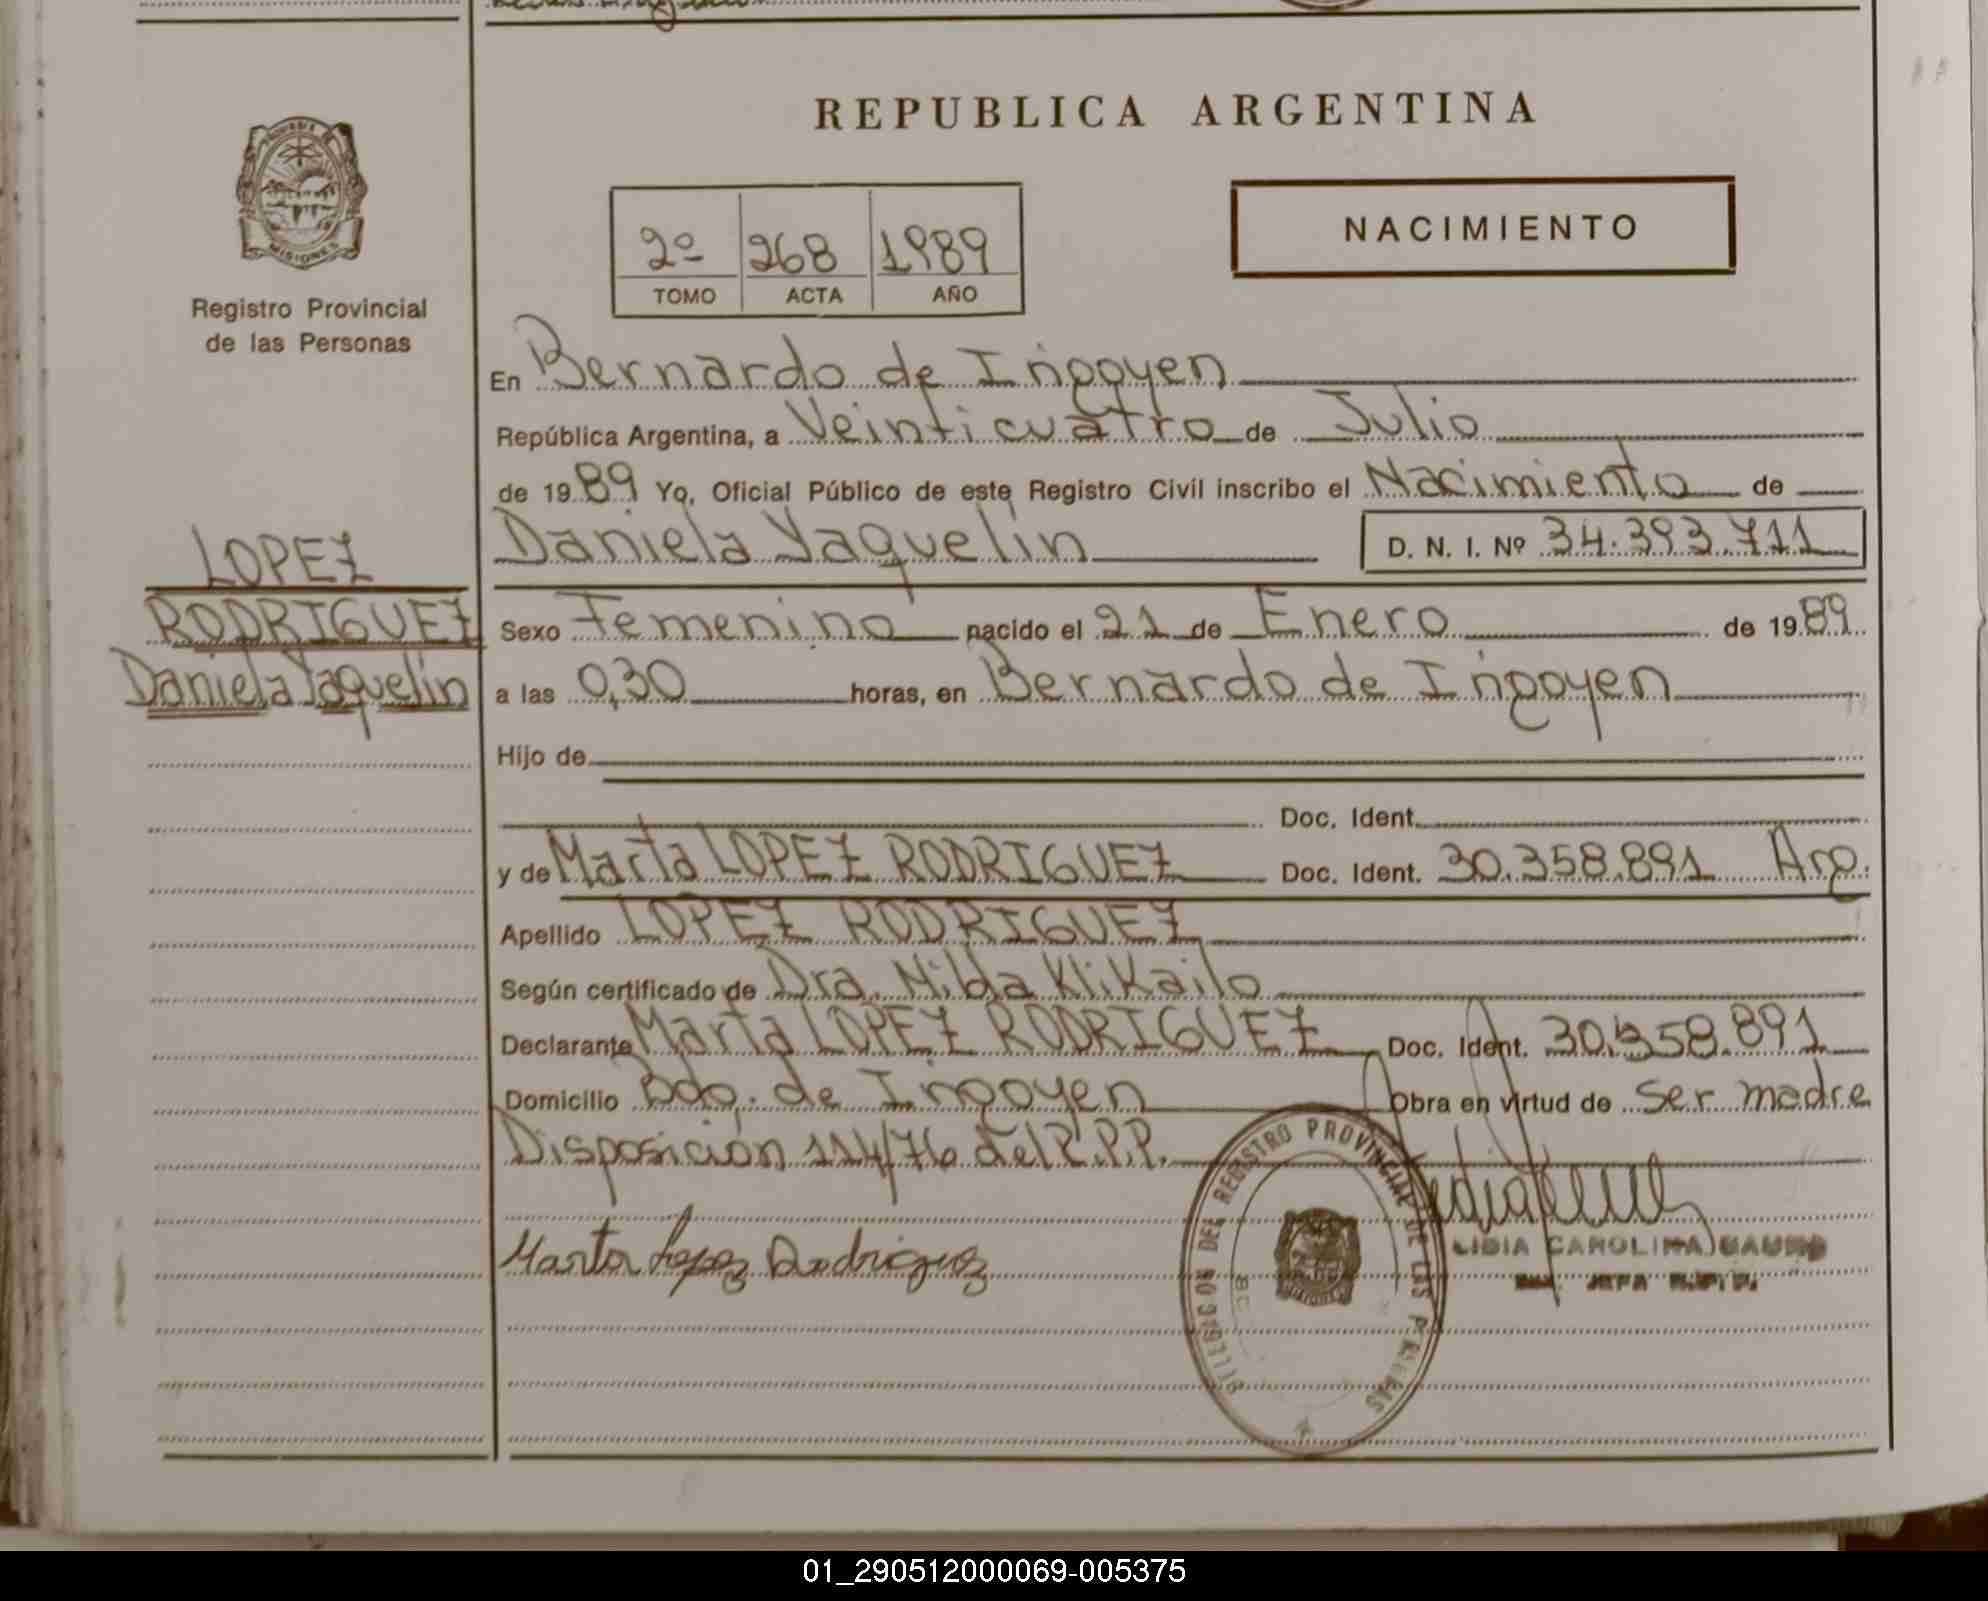 REPUBLICA ARGENTINA
MISIONES
Registro Provincial
de las Personas
2º 268 1989
TOMO ACTA AÑO
NACIMIENTO
En Bernardo de Irigoyen
República Argentina, a Veinticuatro de Julio
de 1989 Yo, Oficial Público de este Registro Civil inscribo el Nacimiento de
Daniela Yaquelin D. N. I. Nº 34.393.711
LOPEZ
RODRIGUEZ
Daniela Yaquelin
Sexo Femenino nacido el 21 de Enero de 1989
a las 0,30 horas, en Bernardo de Irigoyen
Hijo de
Doc. Ident.
y de Marta LOPEZ RODRIGUEZ Doc. Ident. 30.358.891 Arg.
Apellido LOPEZ RODRIGUEZ
Según certificado de Dra. Nilda Klikailo
Declarante Marta LOPEZ RODRIGUEZ Doc. Ident. 30.358.891
Domicilio Bdo. de Irigoyen Obra en virtud de ser madre
Disposición 114/76 del R.P.P.
Marta Lopez Rodriguez
DELEGACION DEL REGISTRO PROVINCIAL DE LAS PERSONAS
LIDIA CAROLINA
JEFA R.P.P.
01_290512000069-005375